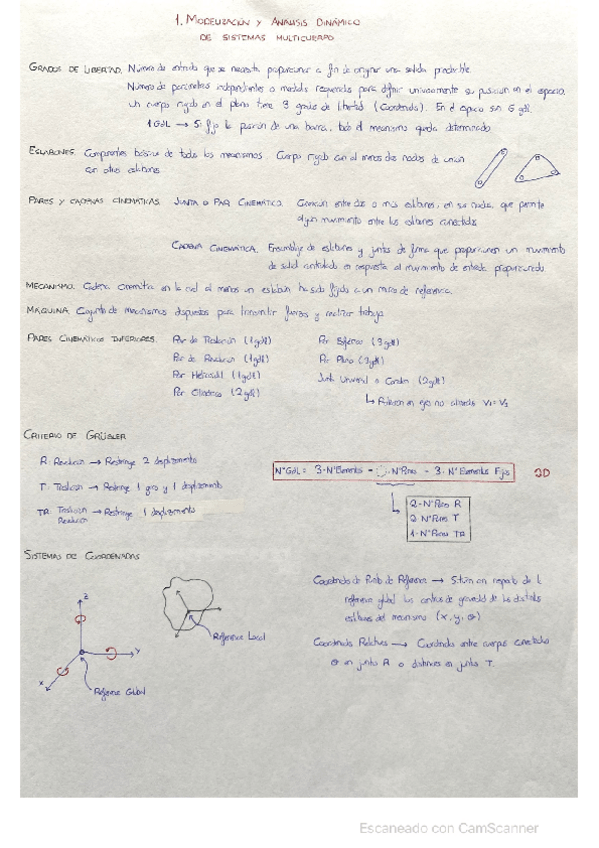 1. MODELIZACIÓN Y ANÁLISIS DINÁMICO
DE SISTEMAS MULTICUERPO
GRADOS DE LIBERTAD. Número de entradas que se necesita proporcionar a fin de originar una salida predecible.
Número de parámetros independientes o medidas requeridas para definir unívocamente su posición en el espacio.
Un cuerpo rígido en el plano tiene 3 grados de libertad (Coordenadas). En el espacio son 6 gdl
1 GdL → Si fijo la posición de una barra, todo el mecanismo queda determinado.
ESLABONES. Componentes básicos de todos los mecanismos. Cuerpo rígido con al menos dos nodos de unión
con otros eslabones
PARES Y CADENAS CINEMÁTICAS. JUNTA O PAR CINEMÁTICO. Conexión entre dos o más eslabones, en sus nodos, que permite
algún movimiento entre los eslabones conectados
CADENA CINEMÁTICA. Ensamblaje de eslabones y juntas de forma que proporcionen un movimiento
de salida controlado en respuesta al movimiento de entrada proporcionado
MECANISMO. Cadena cinemática en la cual al menos un eslabón ha sido fijado a un marco de referencia.
MÁQUINA. Conjunto de mecanismos dispuestos para transmitir fuerzas y realizar trabajo
PARES CINEMÁTICOS INFERIORES. Par de Traslación (1gdl) Par Esférico (3gdl)
Par de Revolución (1gdl) Par Plano (3gdl)
Par Helicoidal (1gdl) Junta Universal o Cardan (2gdl)
Par Cilíndrico (2gdl) ↳ Rotación en ejes no alineados V₁=V₂
CRITERIO DE GRÜBLER
R: Revolución → Restringe 2 desplazamientos
NºGdL = 3·NºElementos - ·NºPares - 3·NºElementos Fijos 2D
T: Traslación → Restringe 1 giro y 1 desplazamiento
TR: Traslación Revolución → Restringe 1 desplazamiento
2·NºPares R
2·NºPares T
1·NºPares TR
SISTEMAS DE COORDENADAS
Z
Y
X
Referencia Global
Referencia Local
Coordenadas de Punto de Referencia → Sitúan con respecto de la
referencia global los centros de gravedad de los distintos
eslabones del mecanismo (x, y, θ)
Coordenadas Relativas → Coordenadas entre cuerpos conectados
θ en junta R o distancias en junta T.
Escaneado con CamScanner